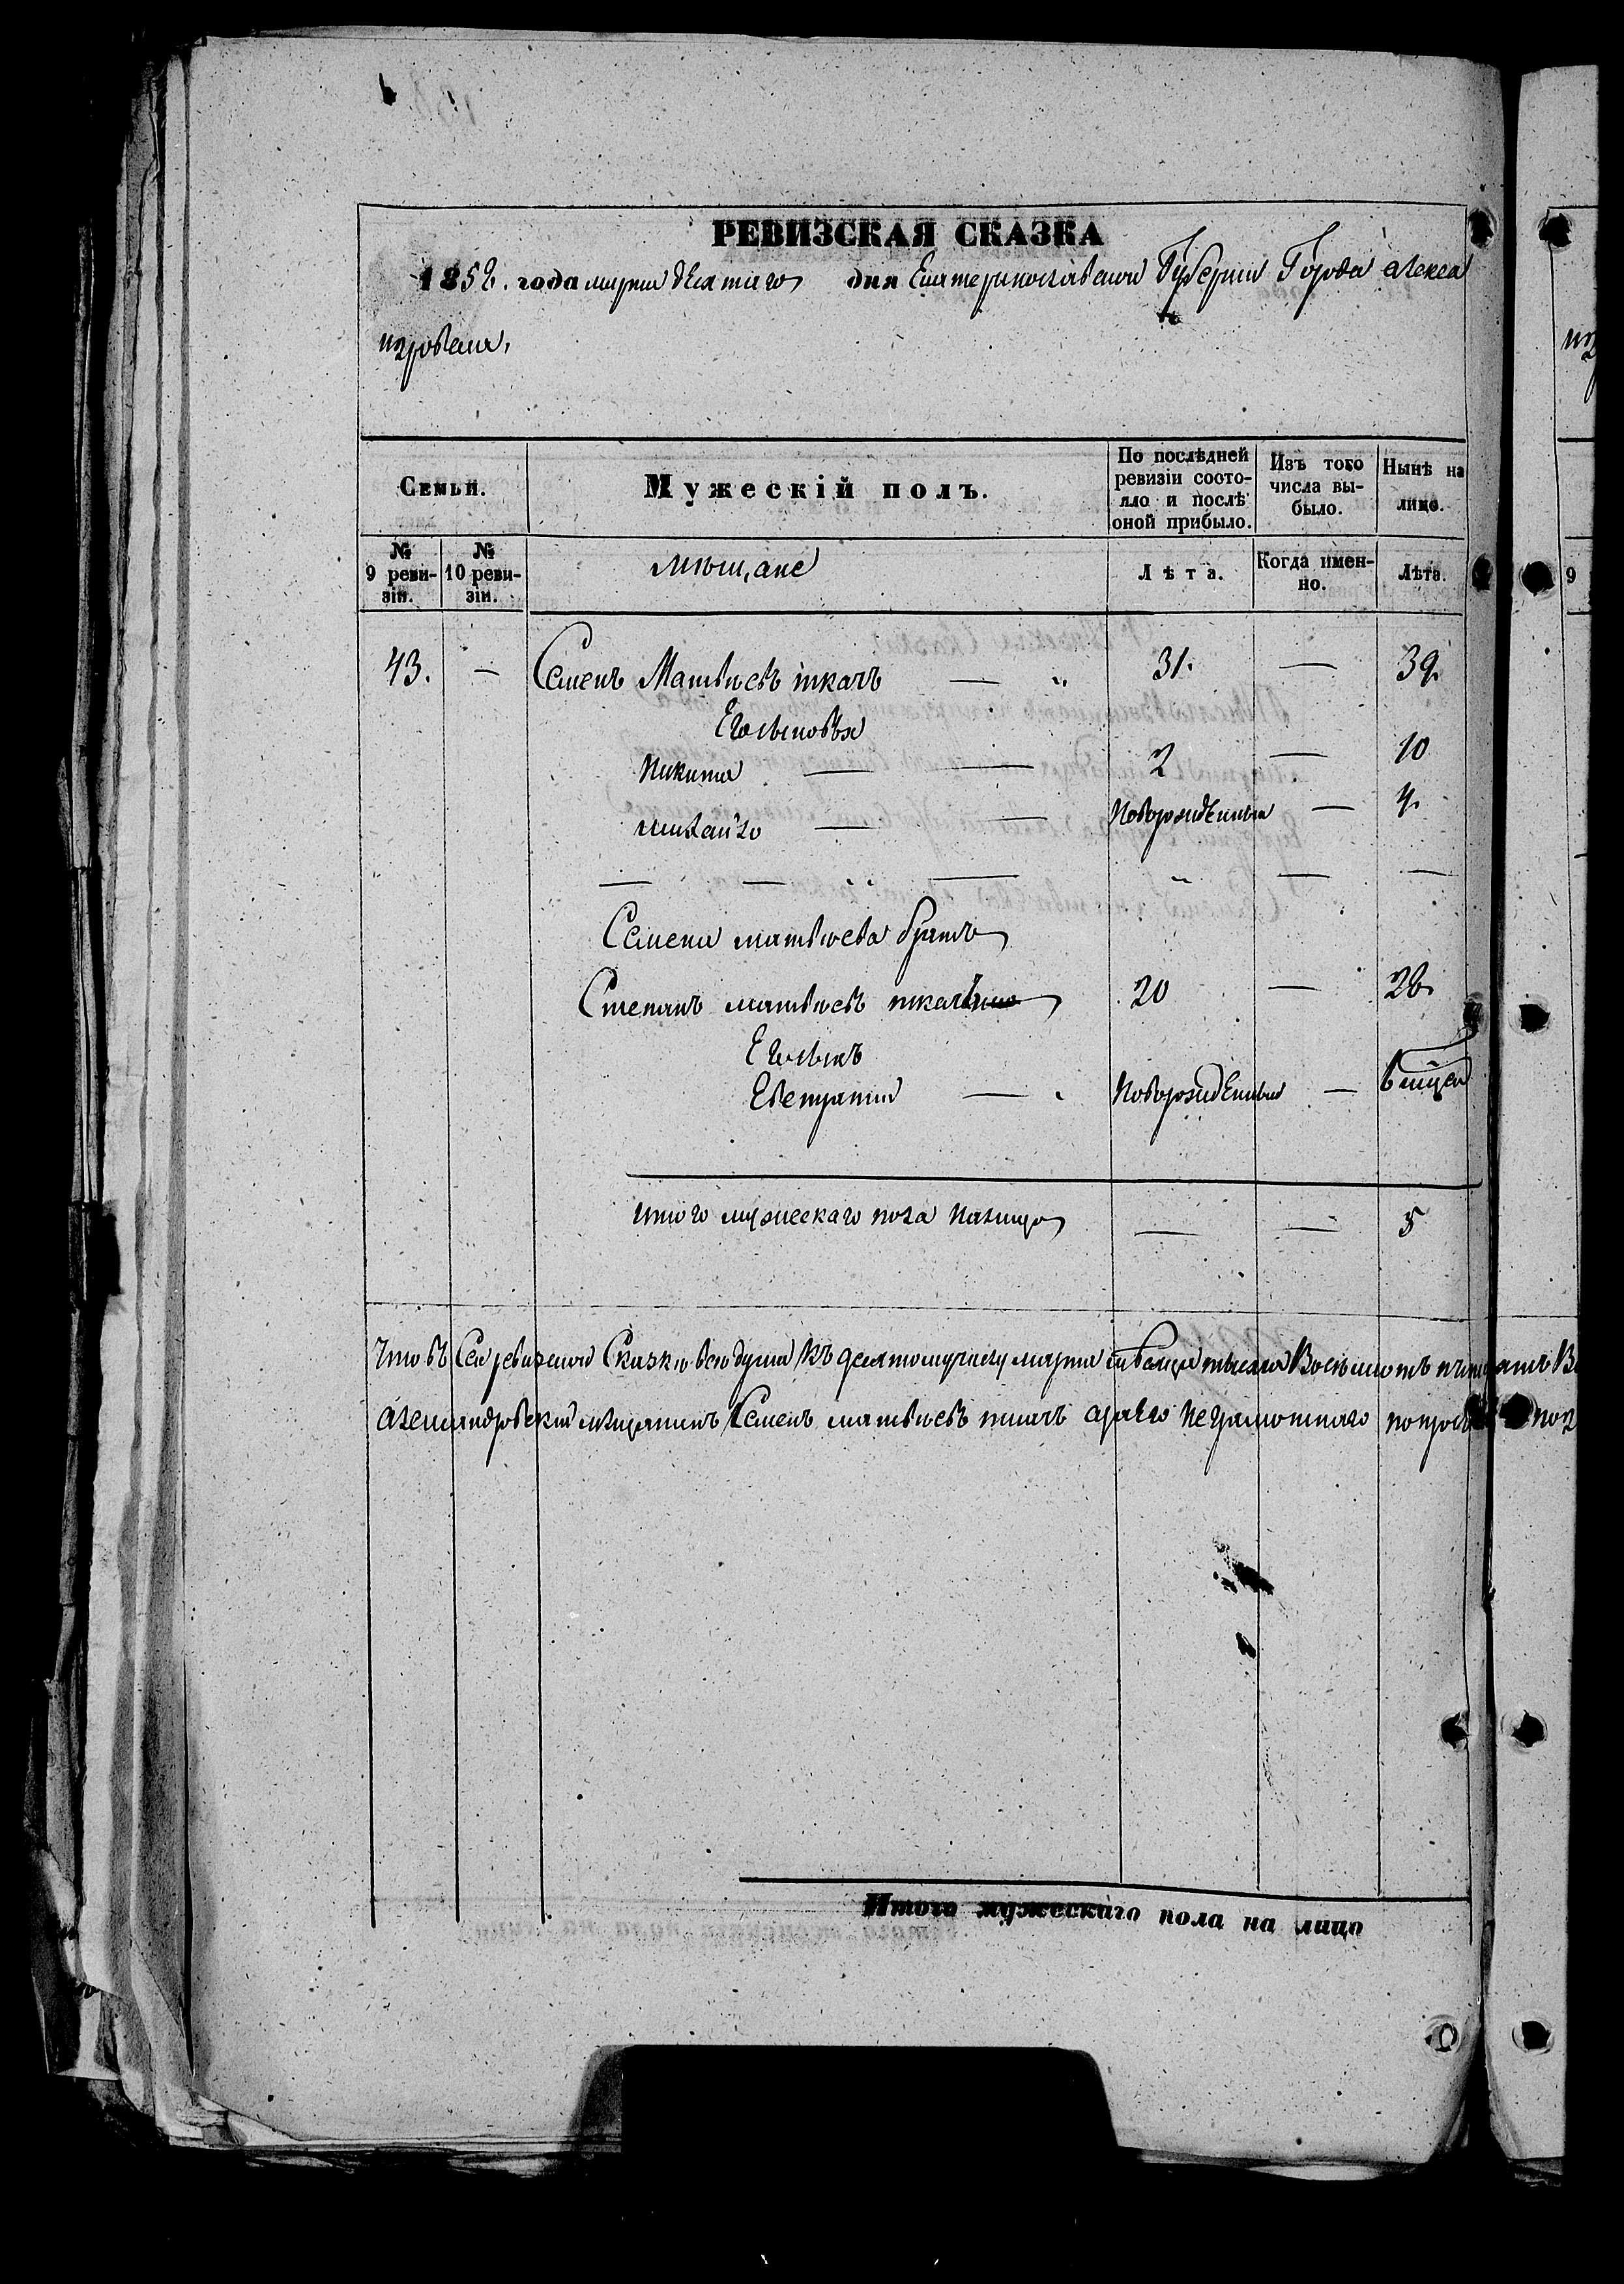 РЕВИЗСКАЯ СКАЗКА
1858. года марта десятаго дня Екатеринославской Губернии Города алекса
ндровска,
Семьи.
Мужескій полъ.
По послѣдней ревизіи состояло и послѣ оной прибыло.
Изъ того числа выбыло.
Нынѣ на лицо.
№ 9 ревизіи.
№ 10 ревизіи.
мѣщане
Лѣта.
Когда именно.
Лѣта.
43. — Семенъ Матвѣевъ ткачъ — „ 31. — 39.
Его сыновья
Никита — — 2 — 10
михайло — — Новорожденный — 4.
Семена матвѣева братъ
Степанъ матвѣевъ 20 — 28.
Его сынъ
Новорожденный —
итого мужескаго пола налицо — — 5
Что въ сей ревизской Сказки всѣ души къ десятому числу марта тысяча Восемсотъ
александровский мѣщанинъ Семенъ матвѣевъ ткачъ неграмотнаго
Итого мужескаго пола на лицо